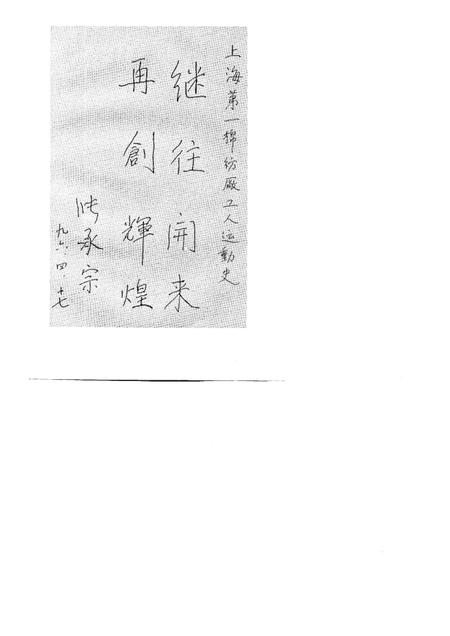 上海第一棉纺厰工人运動史
继往開来
再創輝煌
张承宗
九六.四.十七